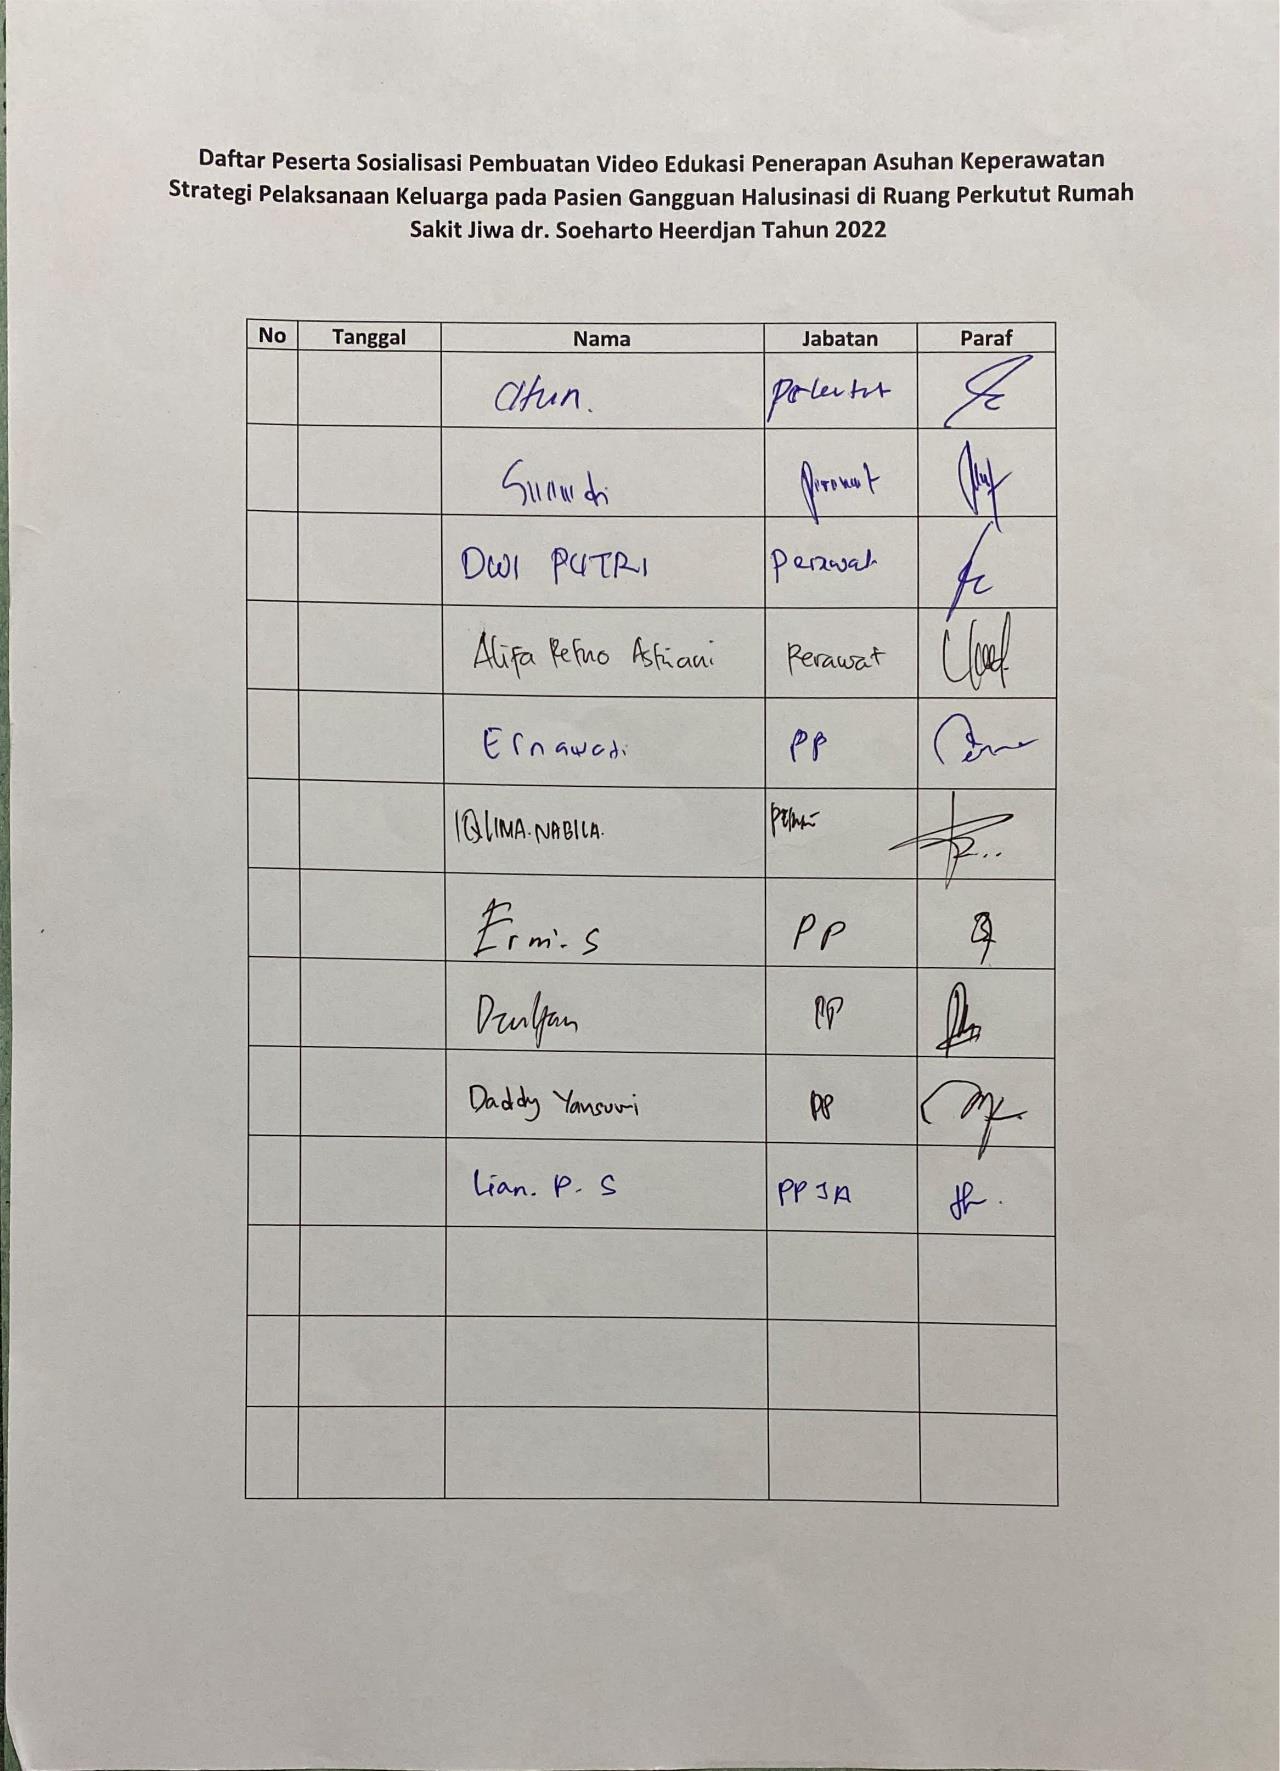 Daftar Peserta Sosialisasi Pembuatan Video Edukasi Penerapan Asuhan Keperawatan
Strategi Pelaksanaan Keluarga pada Pasien Gangguan Halusinasi di Ruang Perkutut Rumah
Sakit Jiwa dr. Soeharto Heerdjan Tahun 2022
No Tanggal Nama Jabatan Paraf
Atun.
DWI PUTRI Perawat
Alifa Retno Perawat
Ernawati PP
IQLIMA.NABILA.
Ermi. S PP
PP
Daddy Yansuri PP
Lian. P. S PPJA